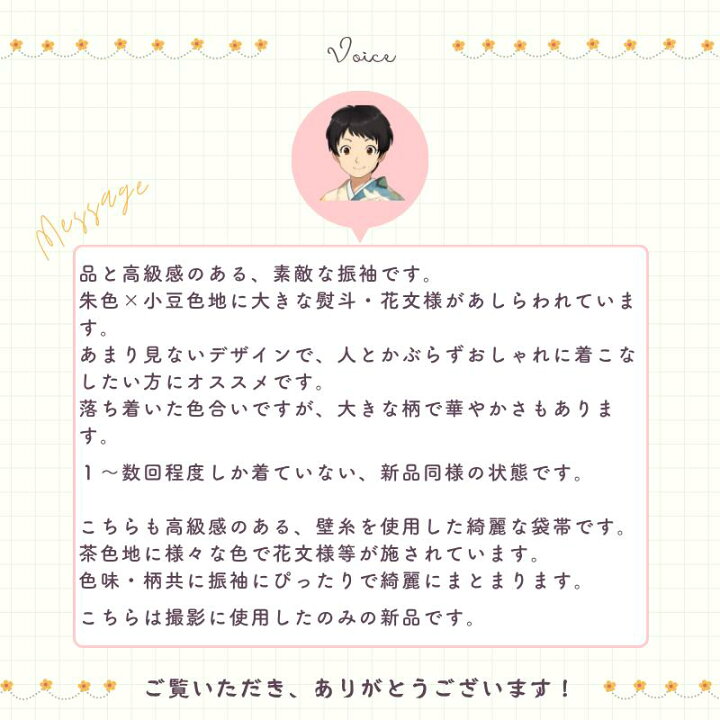 Voice
Message
品と高級感のある、素敵な振袖です。
朱色×小豆色地に大きな熨斗・花文様があしらわれていま
す。
あまり見ないデザインで、人とかぶらずおしゃれに着こな
したい方にオススメです。
落ち着いた色合いですが、大きな柄で華やかさもありま
す。
１～数回程度しか着ていない、新品同様の状態です。
こちらも高級感のある、壁糸を使用した綺麗な袋帯です。
茶色地に様々な色で花文様等が施されています。
色味・柄共に振袖にぴったりで綺麗にまとまります。
こちらは撮影に使用したのみの新品です。
ご覧いただき、ありがとうございます！